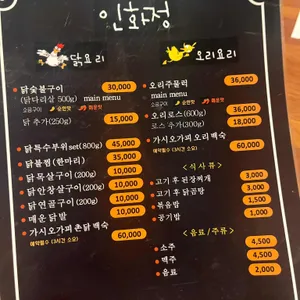 인화정
닭요리
닭숯불구이 30,000
(닭다리살 500g) main menu
소금구이 순한맛 매운맛
닭 추가(250g) 15,000
닭특수부위set(800g) 45,000
닭볶찜(한마리) 35,000
닭목살구이(200g) 10,000
닭안창살구이(200g) 10,000
닭연골구이(200g) 10,000
매운닭발 10,000
가시오가피 촌닭백숙
예약필수 (3시간 소요) 60,000
오리요리
오리주물럭 36,000
main menu
소금구이 순한맛 매운맛
오리로스(600g) 36,000
로스 추가(300g) 18,000
가시오가피 오리백숙
예약필수 (3시간 소요) 60,000
<식사류>
고기 후 된장찌개 3,000
고기 후 닭곰탕 3,000
볶음밥 1,500
공기밥 1,000
<음료/주류>
소주 4,500
맥주 4,500
음료 2,000